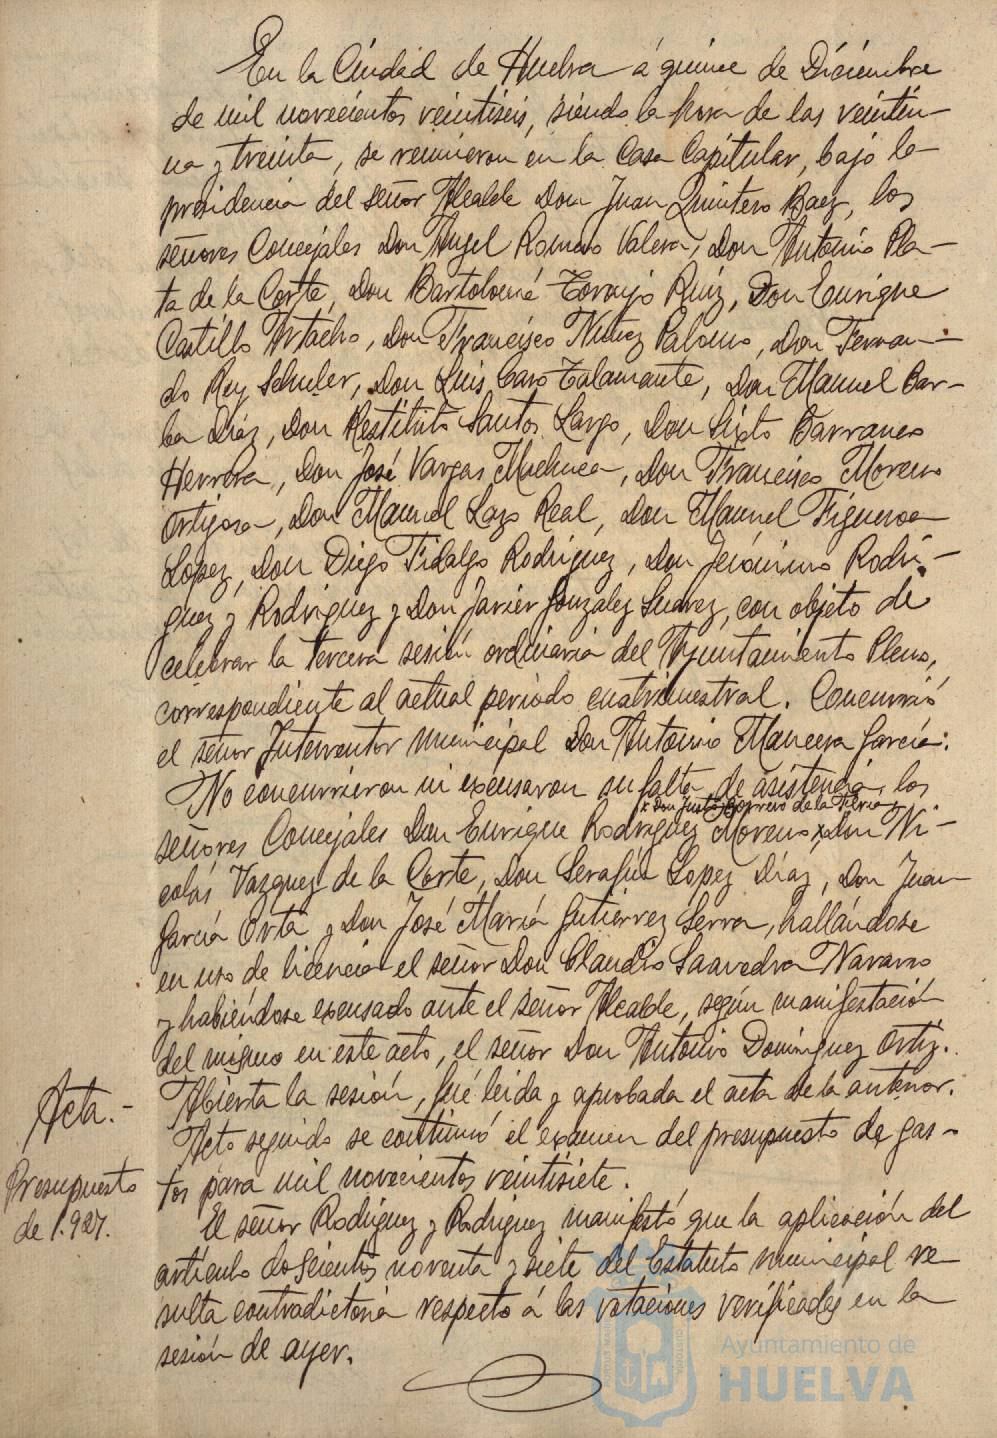 En la Ciudad de Huelva á quince de Diciembre
de mil novecientos veintiseis, siendo la hora de las veintiu-
na y treinta, se reunieron en la Casa Capitular, bajo la
presidencia del señor Alcalde Don Juan Quintero Baez, los
señores Concejales Don Angel Romero Valera, Don Antonio Pla-
ta de la Corte, Don Bartolomé Toronjo Ruiz, Don Enrique
Castillo Artacho, Don Francisco Nuñez Palomo, Don Fernan-
do Rey Schuler, Don Luis Caro Talamante, Don Manuel Bar-
ba Diaz, Don Restituto Santos Largo, Don Sixto Barranco
Herrera, Don José Vargas Machuca, Don Francisco Moreno
Ortigosa, Don Manuel Lazo Real, Don Manuel Figueroa
Lopez, Don Diego Fidalgo Rodriguez, Don Jerónimo Rodri-
guez y Rodriguez y Don Javier Gonzalez Suarez, con objeto de
celebrar la tercera sesión ordinaria del Ayuntamiento Pleno,
correspondiente al actual periodo cuatrimestral. Concurrió
el señor Interventor municipal Don Antonio Mancera Garcia.
No concurrieron ni excusaron su falta de asistencia los
x Don Justo Borrero de la Feria,
señores Concejales Don Enrique Rodriguez Moreno, x Don Ni-
colás Vazquez de la Corte, Don Serafin Lopez Diaz, Don Juan
Garcia Orta y Don José Maria Gutierrez Serra, hallándose
en uso de licencia el señor Don Claudio Saavedra Navarro
y habiéndose excusado ante el señor Alcalde, según manifestación
del mismo en este acto, el señor Don Antonio Dominguez Ortiz.
Acta.-
Abierta la sesión, fué leida y aprobada el acta de la anterior.
Presupuesto
de 1.927.
Acto seguido se continuó el examen del presupuesto de gas-
tos para mil novecientos veintisiete.
El señor Rodriguez y Rodriguez manifestó que la aplicación del
artículo doscientos noventa y siete del Estatuto municipal re-
sulta contradictoria respecto á las votaciones verificadas en la
sesión de ayer.
Ayuntamiento de
HUELVA